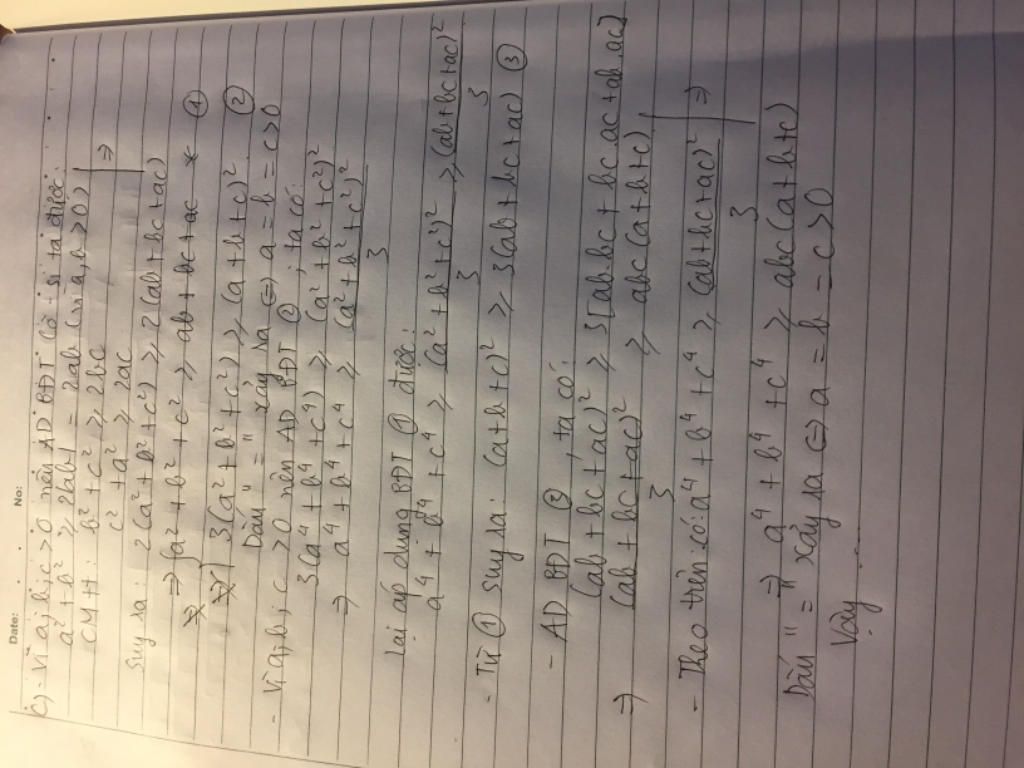 Date: No:
c) Vì a, b, c > 0 nên AD BĐT Cô-si ta được:
a² + b² ≥ 2|ab| = 2ab (vì a, b > 0)
CMTT: b² + c² ≥ 2bc
c² + a² ≥ 2ac
⇒
Suy ra: 2(a² + b² + c²) ≥ 2(ab + bc + ac)
⇒ a² + b² + c² ≥ ab + bc + ac ①
3(a² + b² + c²) ≥ (a + b + c)² ②
Dấu "=" xảy ra ⇔ a = b = c > 0
- Vì a, b, c > 0 nên AD BĐT ②, ta có:
3(a⁴ + b⁴ + c⁴) ≥ (a² + b² + c²)²
⇒ a⁴ + b⁴ + c⁴ ≥ (a² + b² + c²)²
3
Lại áp dụng BĐT ① được:
a⁴ + b⁴ + c⁴ ≥ (a² + b² + c²)² ≥ (ab + bc + ac)²
3 3
- Từ ① suy ra: (a + b + c)² ≥ 3(ab + bc + ac) ③
- AD BĐT ②, ta có:
(ab + bc + ac)² ≥ 3[ab.bc + bc.ac + ab.ac]
⇒ (ab + bc + ac)² ≥ abc(a + b + c)
3
- Theo trên có: a⁴ + b⁴ + c⁴ ≥ (ab + bc + ac)² ⇒
3
⇒ a⁴ + b⁴ + c⁴ ≥ abc(a + b + c)
Dấu "=" xảy ra ⇔ a = b = c > 0
Vậy...